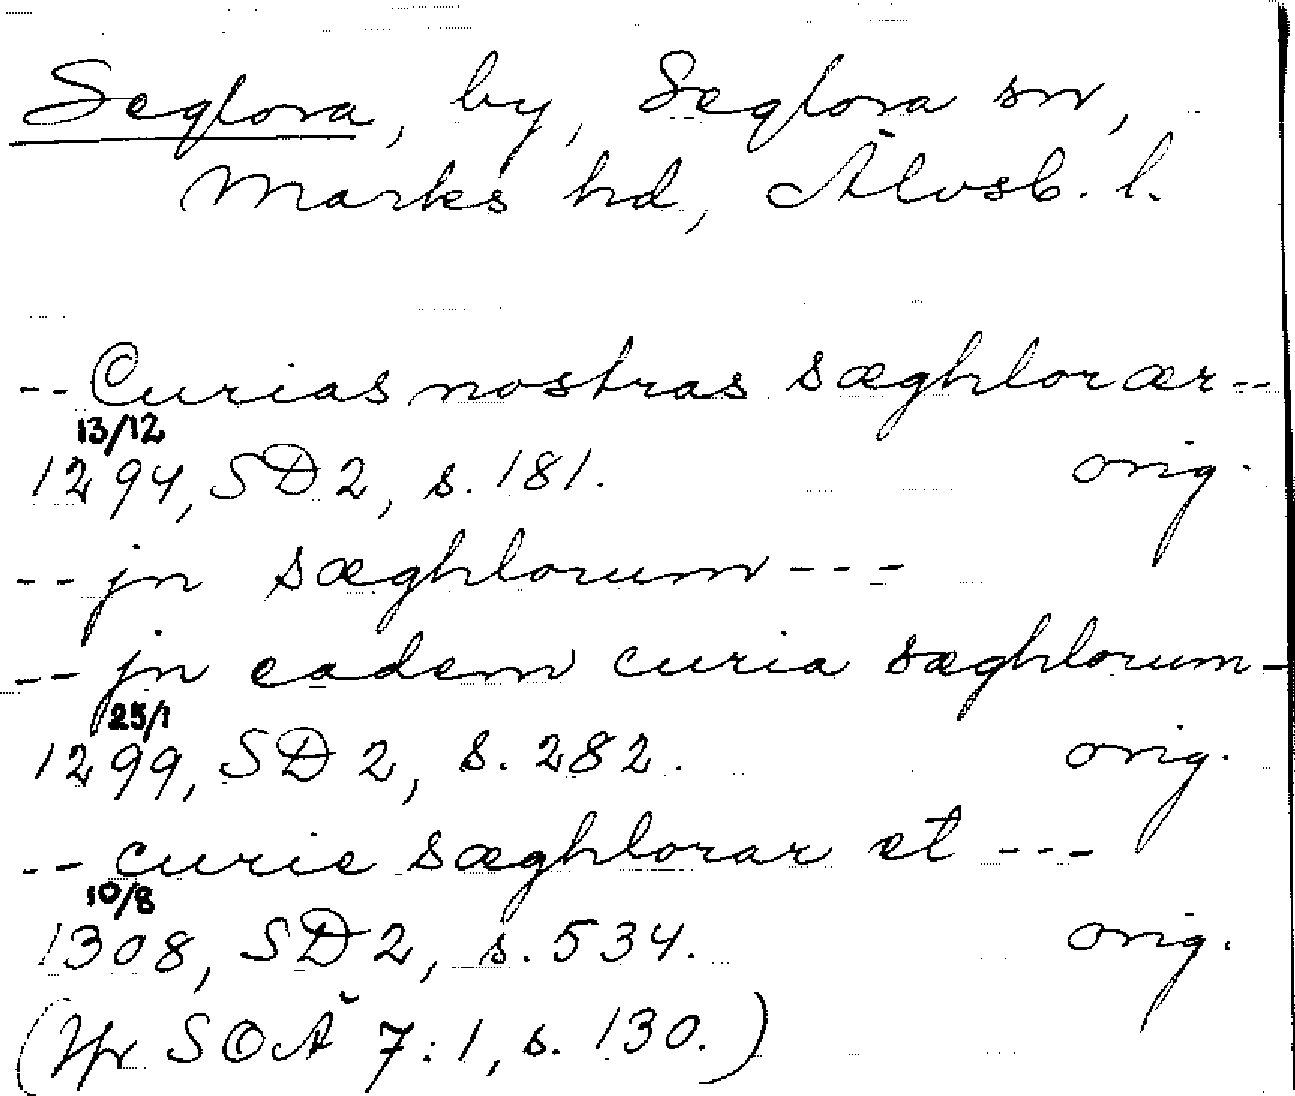 Seglora, by, Seglora sn,
Marks hd, Älvsb. l.
-- Curias nostras sæghlorær --
13/12
1294, SD 2, s. 181. orig.
-- jn sæghlorum ---
-- jn eadem curia sæghlorum -
25/1
1299, SD 2, s. 282. orig.
-- curie sæghlorar et ---
10/8
1308, SD 2, s. 534. orig.
(Jfr SOÄ 7:1, s. 130.)